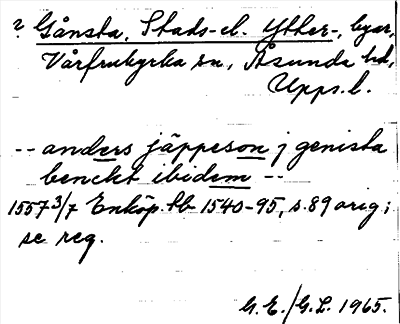 ? Gånsta, Stads- el. Ytter-, byar,
Vårfrukyrka sn, Åsunda hd,
Upps. l.
-- anders jäppeson j genista
benckt ibidem --
1557 3/7 Enköp. tb 1540-95, s. 89 orig;
se reg.
G. E./G. L. 1965.